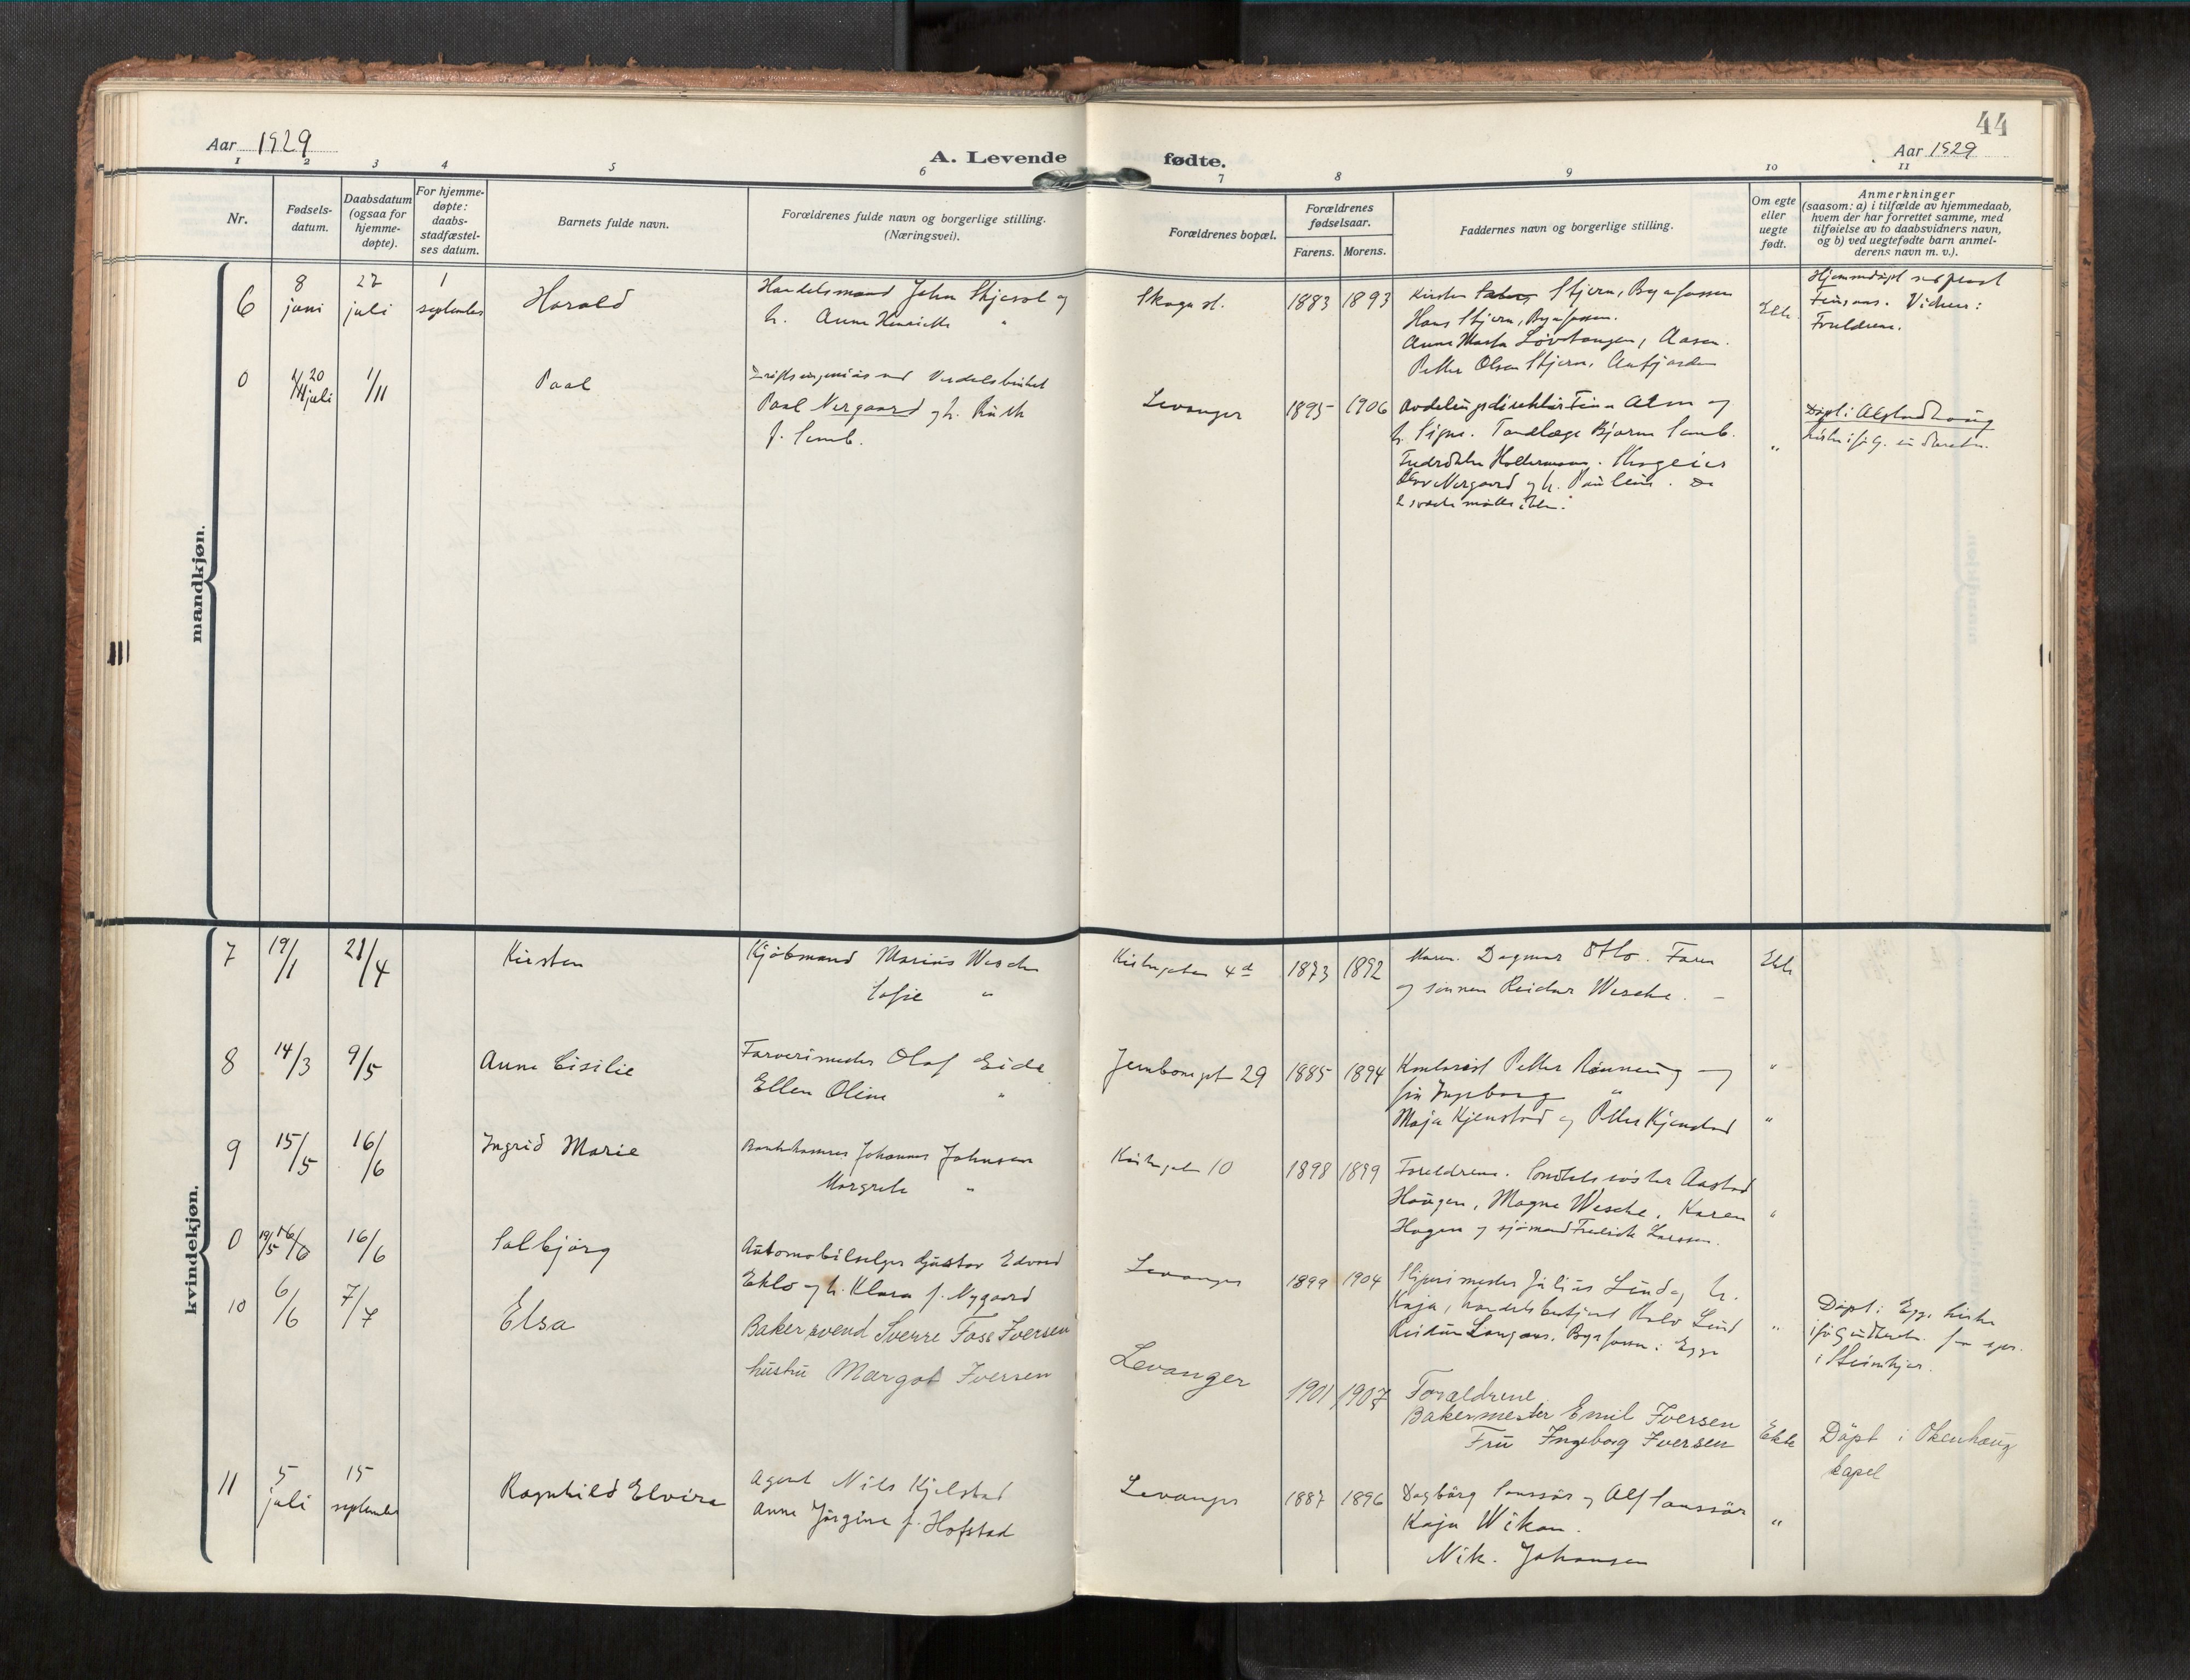 44
Aar 1929
A. Levende fødte.
Aar 1929
1 2 3 4 5 6 7 8 9 10 11
Nr.
Fødsels-
datum.
Daabsdatum
(ogsaa for
hjemme-
døpte).
For hjemme-
døpte:
daabs-
stadfæstel-
ses datum.
Barnets fulde navn.
Forældrenes fulde navn og borgerlige stilling.
(Næringsvei).
Forældrenes bopæl.
Forældrenes
fødselsaar.
Farens. Morens.
Faddernes navn og borgerlige stilling.
Om egte
eller
uegte
født.
Anmerkninger
(saasom: a) i tilfælde av hjemmedaab,
hvem der har forrettet samme, med
tilføielse av to daabsvidners navn,
og b) ved uegtefødte barn anmel-
derens navn m. v.).
mandkjøn.
6
8
juni
27
juli
1
september
Harald
Handelsmand John og
h. Anna "
Skogn st.
1883 1893
Stjern,
Hans Stjern,
Anna Løvtangen, Aasen.
Petter Olsen Stjern,
Ekte
Hjemmedøpt
Vidner:
Foreldrene.
0
20
juli
1/11
Paal
Paal Nergaard og h. Ruth
f. Samb.
Levanger
1895 1906
Avdelingsdirektør Alm og
h. Signe. Tandlæge Bjarne Samb.
Nergaard og h. Pauline.
"
Døpt i Alstadhaug
kvindekjøn.
7
19/1
21/4
Kirsten
Kjøbmand Marius Wesche
Sofie "
Kirkegaten 4d
1873 1892
Moren. Dagmar Otlo. Faren
og sønnen Reidar Wesche. -
Ekte
8
14/3
9/5
Anna Cisilie
Farverimester Olaf Eide
Ellen Oline "
Jernbanegt 29
1885 1894
Kontorist Petter Rønning og
fru Ingeborg "
Maja Kjenstad og Petter Kjenstad
"
9
15/5
16/6
Ingrid Marie
Bankkasserer Johannes Johnsen
Margrete "
Kirkegaten 10
1898 1899
Foreldrene. Aastad
Haugen, Magne Wesche, Karen
Hagen og sjømand Fredrik Larssen.
"
0
19/5
16/6
Solbjørg
Automobilselger Gustav Edvard
Eklo og h. Klara f. Nygaard
Levanger
1899 1904
Julius Lind og h.
Kaja, handelsbetjent Lind
"
Døpt i Egge kirke
i Steinkjer.
10
6/6
7/7
Elsa
Bakersvend Sverre Foss Iversen
hustru Margot Iversen
Levanger
1901 1907
Forældrene
Bakermester Emil Iversen
Fru Ingeborg Iversen
Ekte
Døpt i Okenhaug
kapel
11
5
juli
15
september
Ragnhild Elvira
Agent Nils Kjelstad
Anna Jørgine f. Hofstad
Levanger
1887 1896
Dagbørg Saussør og Alf Saussør
Kaja Wikan.
Nik. Johansen
"